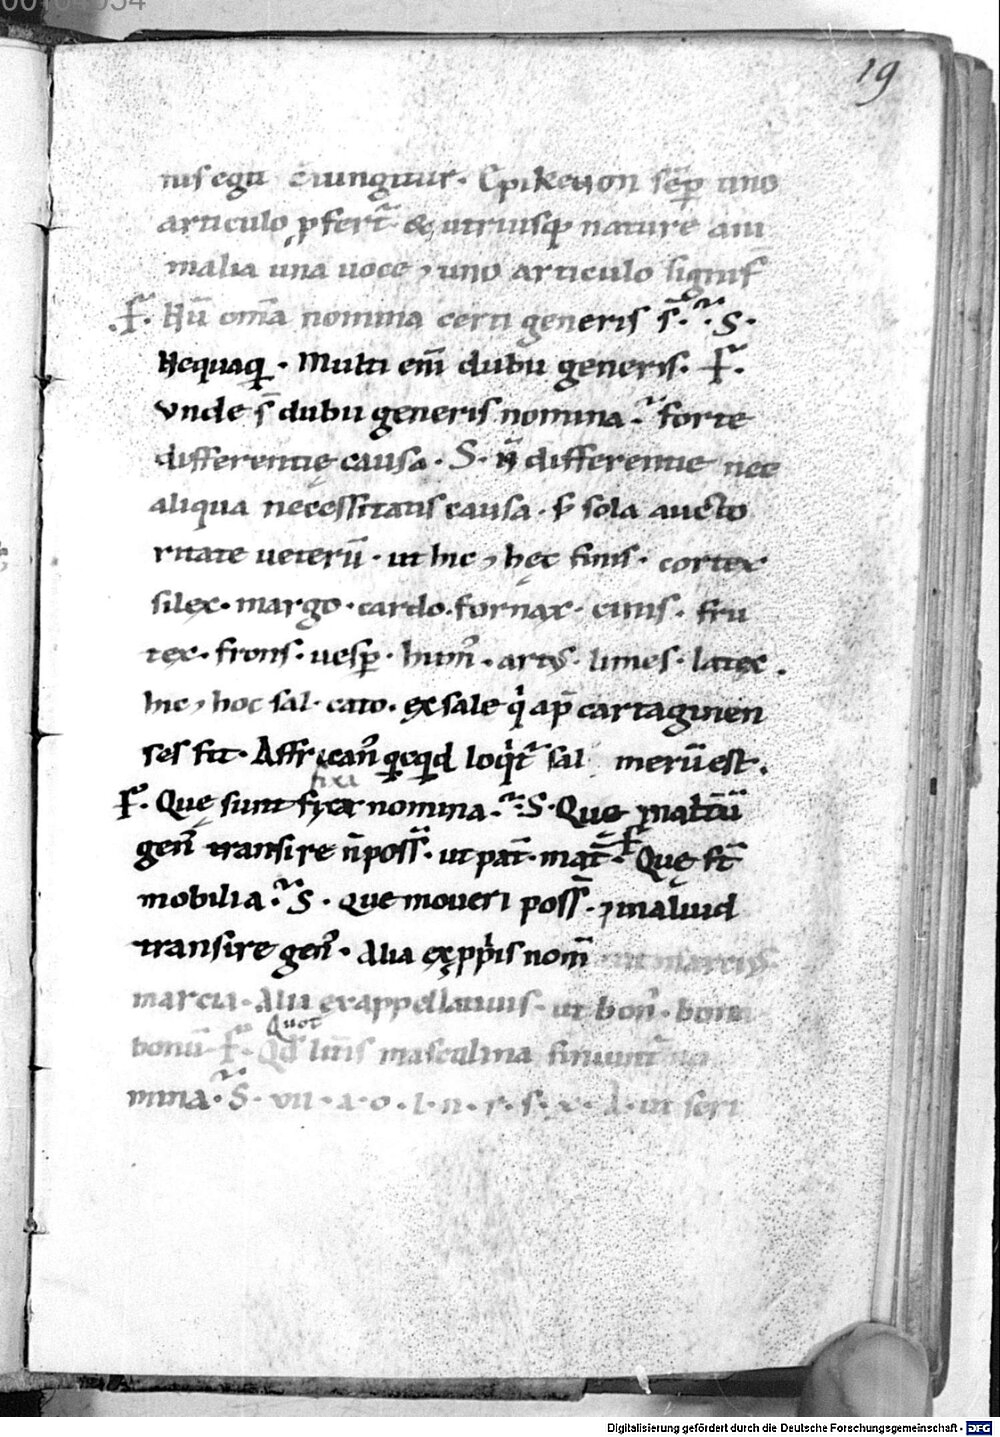 19
nis egit iungitur. Epikenon sēp uno
articulo p̄fert̄ & utriusq; nature ani
malia una uoce, uno articulo signif̄
.F. Nū om̄a nomina certi generis s̄. S.
Nequaq̄. Multi eni̅ dubii generis. F.
Vnde s̄ dubii generis nomina. forte
differentię causa. S. n̄ differentie nec
aliqua necessitatis causa. s̄ sola aucto
ritate ueterū. ut hic, hęc finis. cortex
silex. margo. cardo. fornax. cinis. fru
tex. frons. uesp̄. limes. latex.
hic, hoc sal. cato. ex sale q̇ ap̄ cartaginen
ses fit. Affrican9 q̇cq̇d loq̇t̄ sal merū est.
fixa
F. Quę sunt fixa nomina. S. Que in alt̄iū
gen9 transire n̄ poss̄. ut pat̄. mat̄. F Quę st̄
mobilia. S. que moueri poss̄. in aliud
transire gen9. alia ex pp̄is nom̄ ut marcius
marcia. Alia ex appellatiuis. ut bon9. bona
Quot
bonū. F. Qd̄ lit̄is masculina finiunt̄ no
mina. S. vii. a. o. l. n. r. s. x. A. ut scri
Digitalisierung gefördert durch die Deutsche Forschungsgemeinschaft - DFG